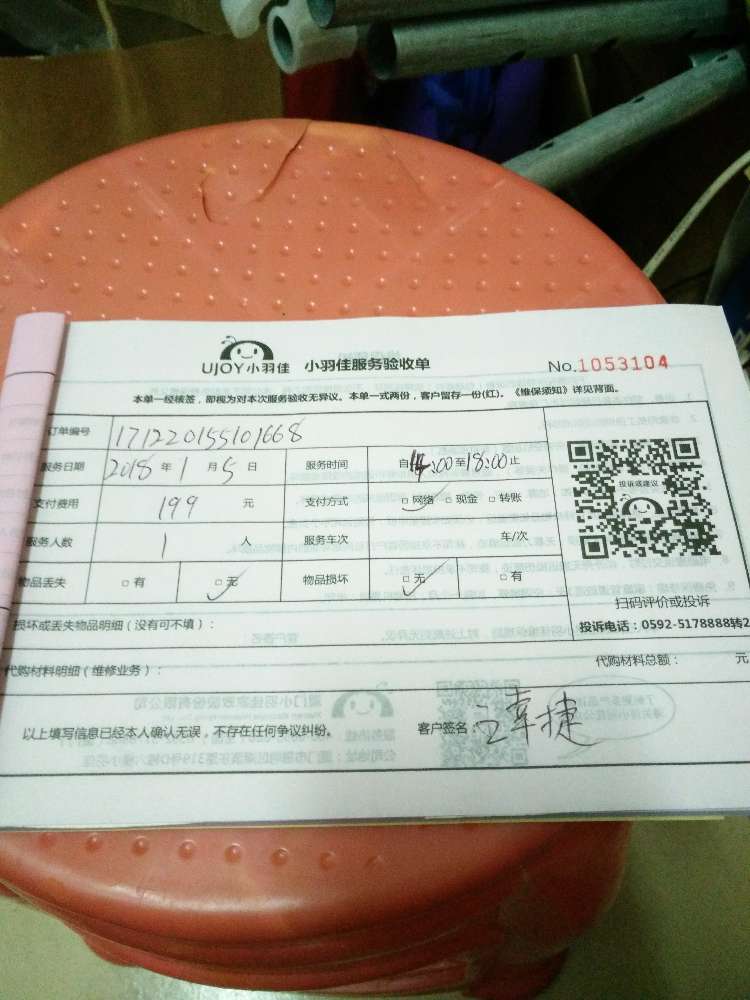 UJOY小羽佳 小羽佳服务验收单 No.1053104
本单一经核签，即视为对本次服务验收无异议。本单一式两份，客户留存一份(红)。《维保须知》详见背面。
订单编号 171220155101668
服务日期 2018 年 1 月 5 日 服务时间 自14:00至18:00止
支付费用 199 元 支付方式 □网络 □现金 □转账
服务人数 1 人 服务车次 车/次
物品丢失 □有 □无 物品损坏 □无 □有
投诉或建议
扫码评价或投诉
投诉电话：0592-5178888转2
损坏或丢失物品明细（没有可不填）：
代购材料明细（维修业务）： 代购材料总额： 元
以上填写信息已经本人确认无误，不存在任何争议纠纷。 客户签名：